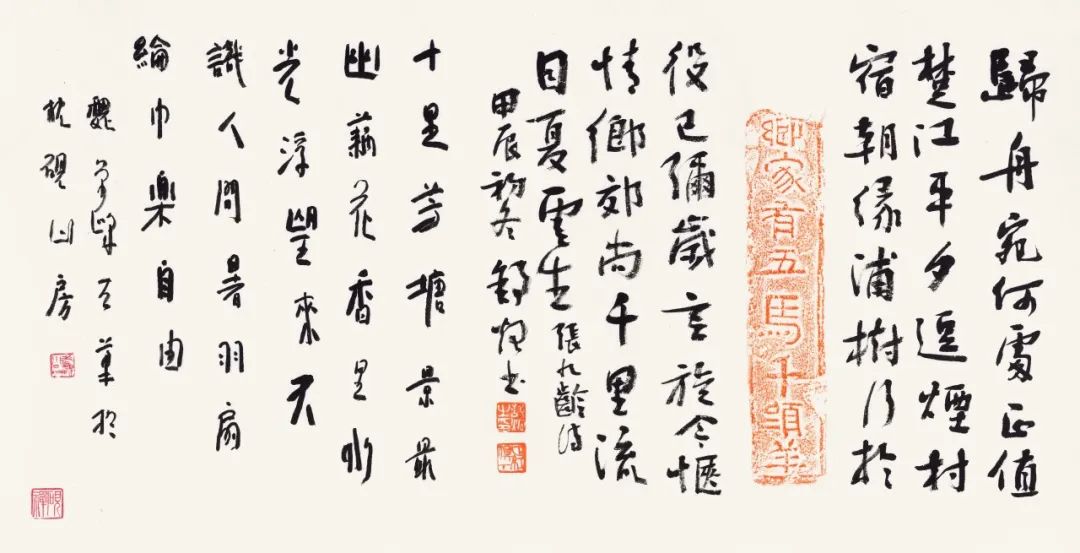 歸舟宛何處正值
楚江平夕逗煙村
宿朝緣浦樹行於
卿家有五馬千頭羊
役已彌歲言旋今愜
情鄉郊尚千里流
目夏雲生 張九齡詩
甲辰初冬 書
十里芳塘景最
幽藕花香里水
光浮望來不
識人間暑羽扇
綸巾樂自由
草於
枕硯山房